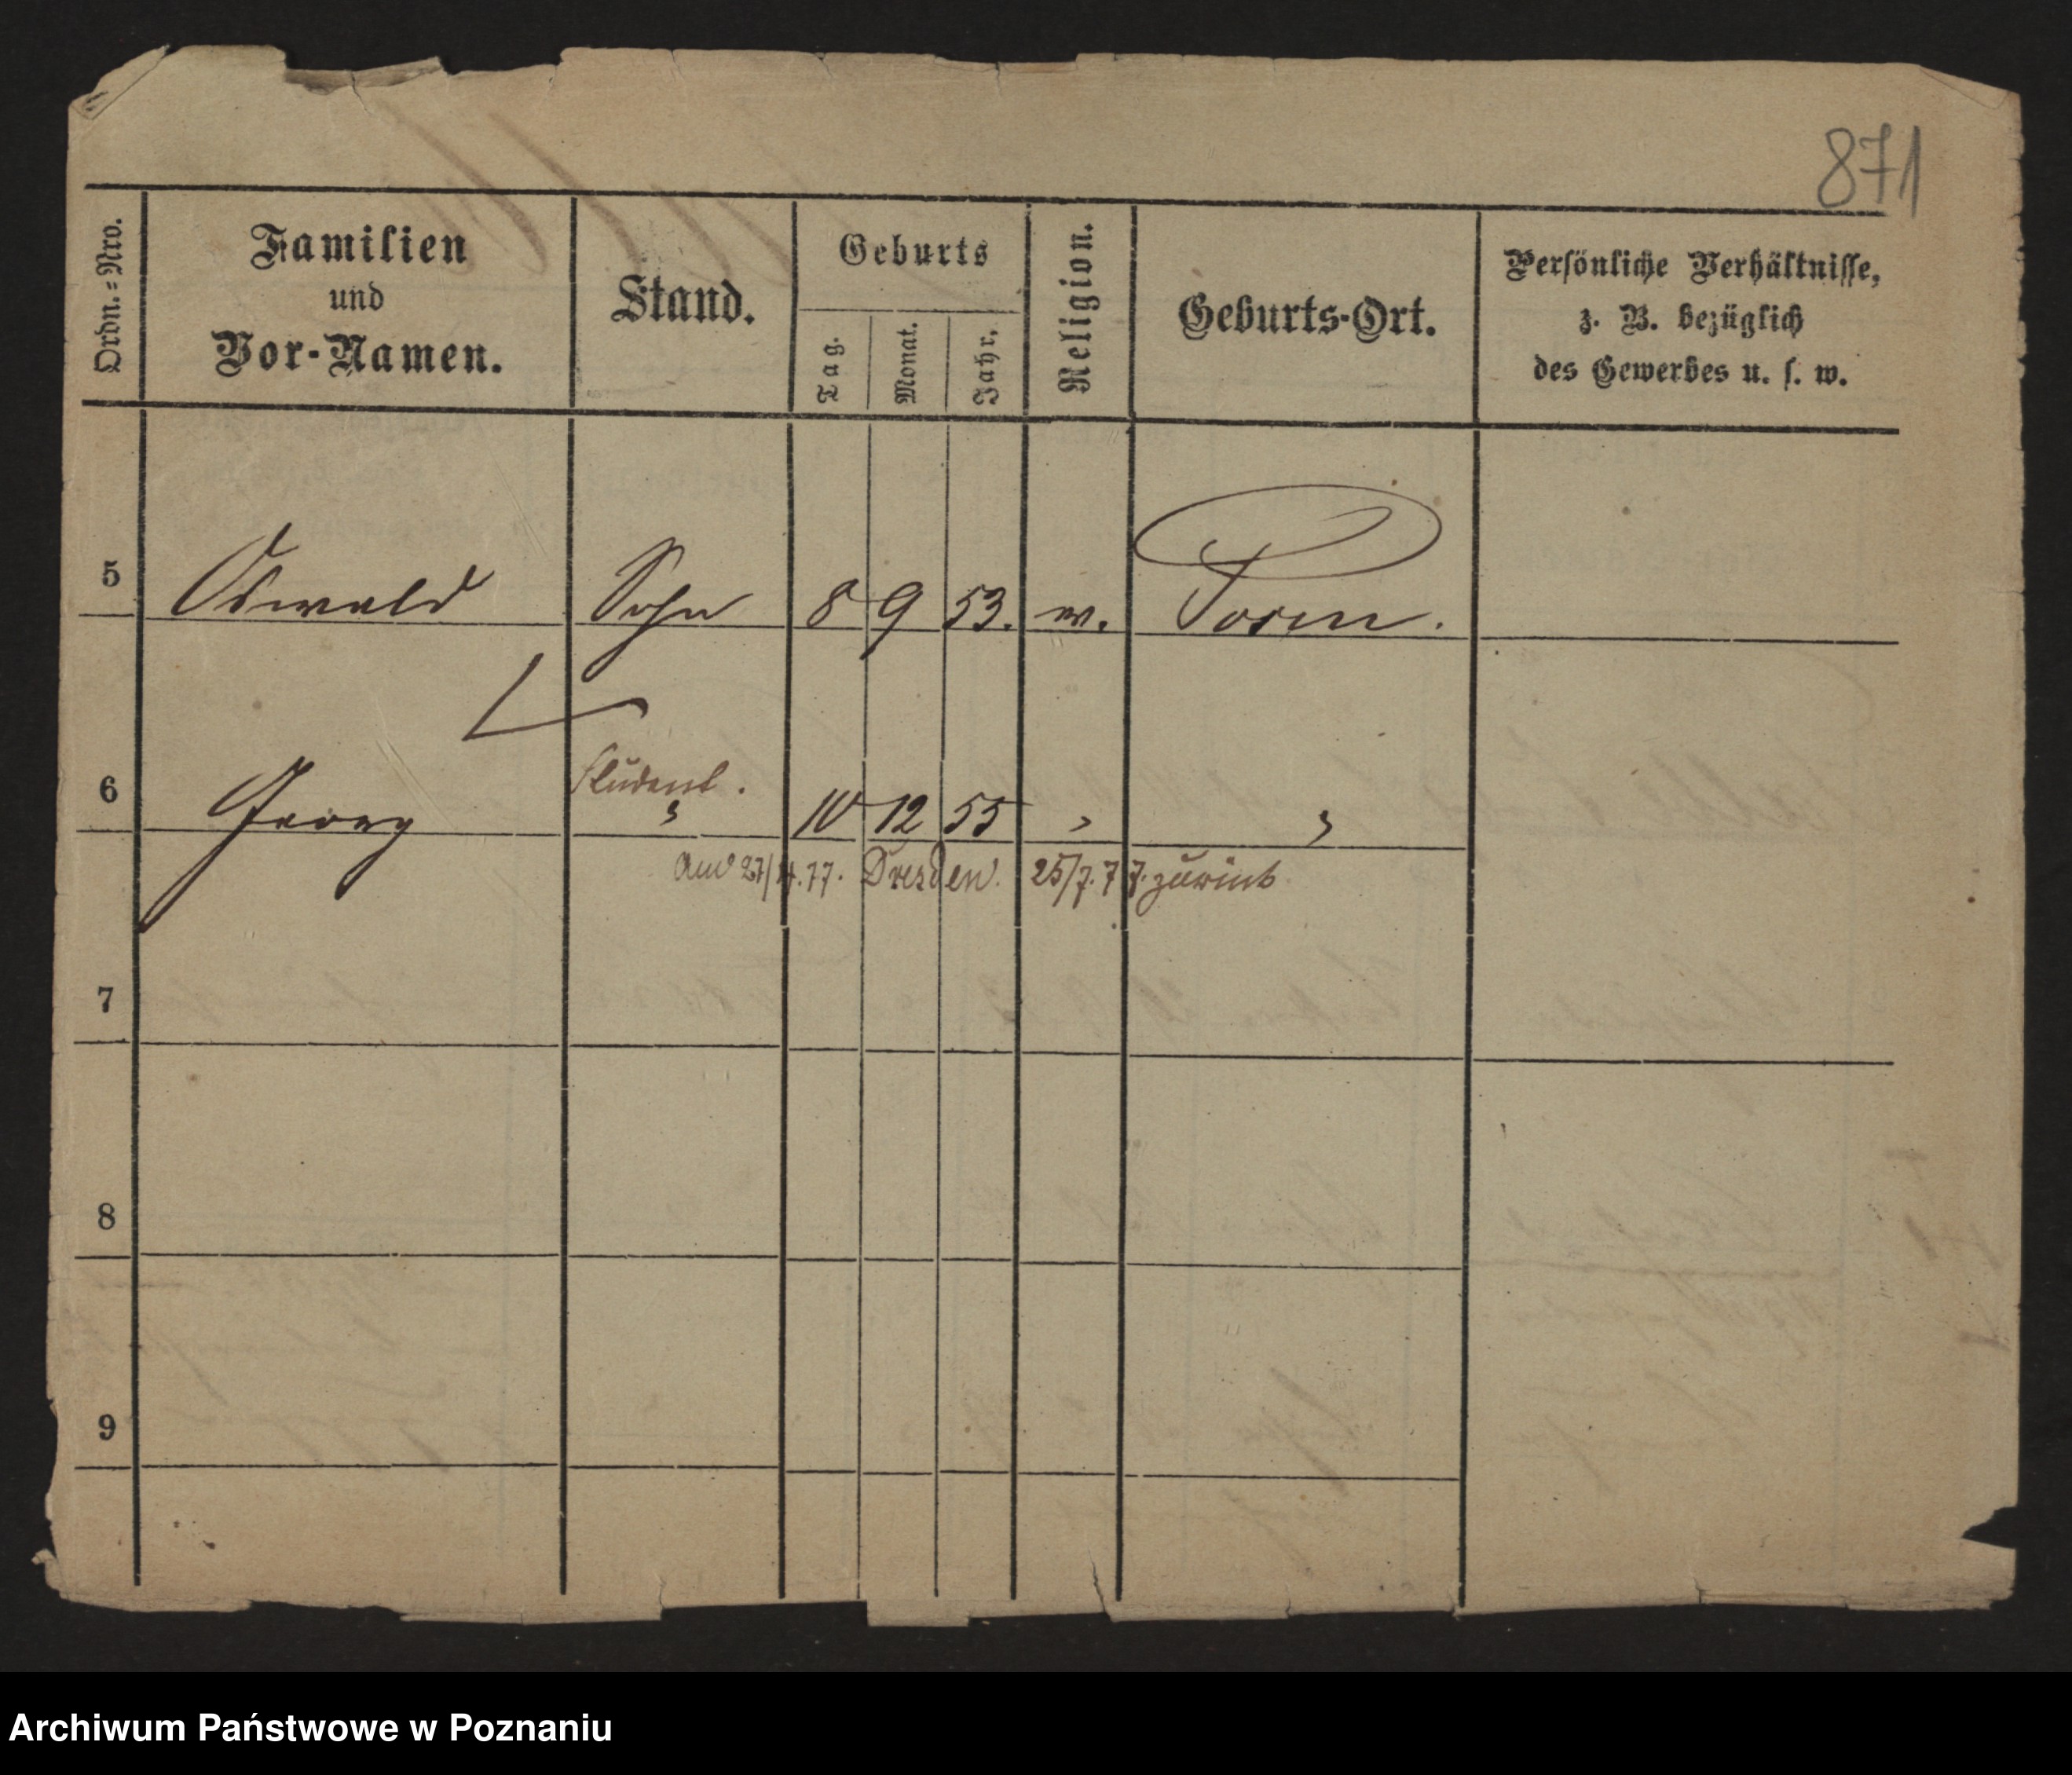 871
Ordn.-Nro.
Familien
und
Vor-Namen.
Stand.
Geburts
Tag.
Monat.
Jahr.
Religion.
Geburts-Ort.
Persönliche Verhältnisse,
z. B. bezüglich
des Gewerbes u. s. w.
5 Oswald Sohn 8 9 53.
Student.
6 Georg " 10 12 55 " "
27/4.77. Dresden. 25/7.77. zurück
7
8
9
Archiwum Państwowe w Poznaniu